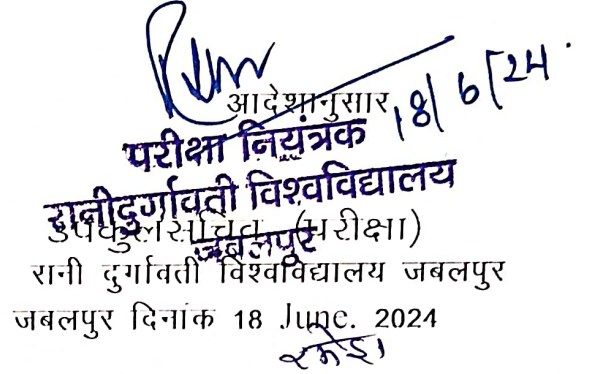 आदेशानुसार 18/6/24
परीक्षा नियंत्रक
रानीदुर्गावती विश्वविद्यालय
जबलपुर
उपकुलसचिव (परीक्षा)
रानी दुर्गावती विश्वविद्यालय जबलपुर
जबलपुर दिनांक 18 June. 2024